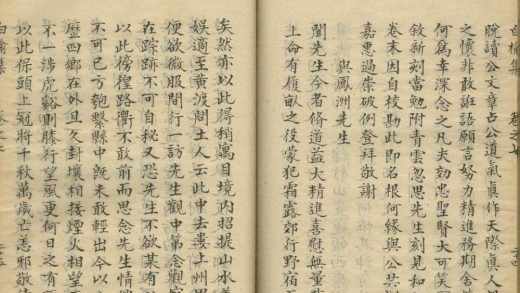 白榆集
卷之七
脫讀公文章占公道氣真作天際真人
之懷非敢誑語願言努力精進務期舍
何為幸深念之凡夫効忠聖賢大可笑
敘新刻當勉附青雲忽思先生刻見和
卷末因自校勘此即名根何緣與公共
嘉惠過崇破例登拜敬謝
與鳳洲先生
聞先生今者脩道益大精進喜慰無量
土命有履畝之役蒙犯霜露郊行野宿
矣然亦以此得稍寓目境內招提山水
娛適至黃渡問土人云此中去婁上州
便欲微服間行一訪先生觀中第念觀
在跡跡不可自秘又恐先生不欲某有
以此徬徨路衢不敢前而思念先生情
不可已方匏繫縣中既未敢輕出今以
歷四鄉在外且久封壤相接煙火相望
不一涉虎谿則勝行望風更何日之有
以此保頭上冠將千秋萬歲亡恙邪敬
白榆集
卷之七